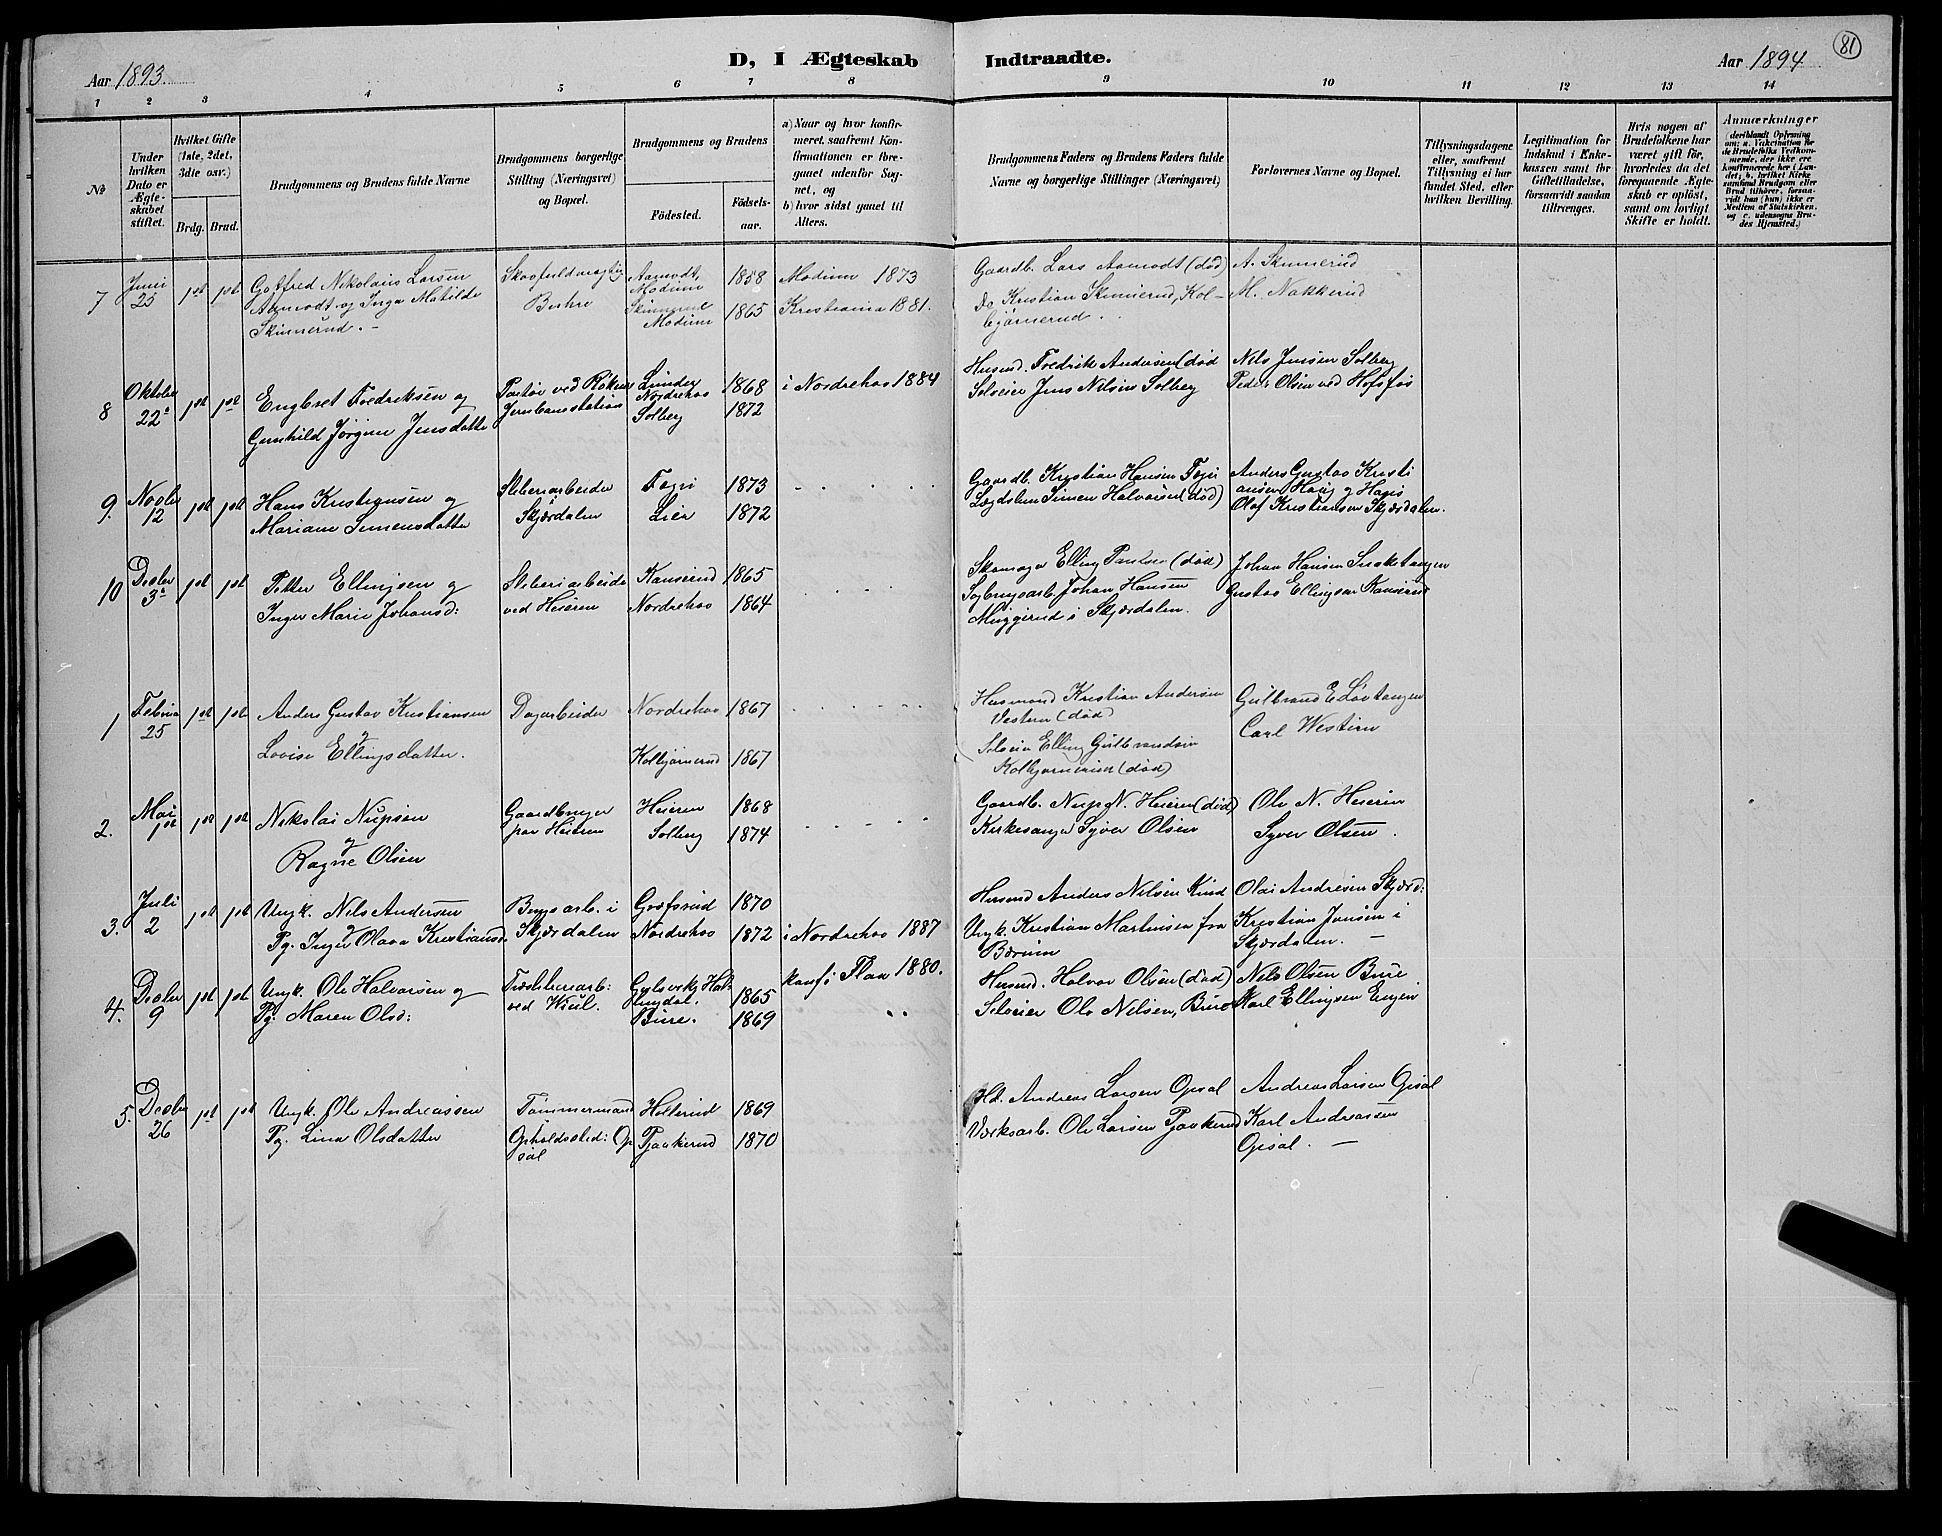 D, I Ægteskab Indtraadte.
81
Aar 1893.
Aar 1894
1 2 3 4 5 6 7 8 9 10 11 12 13 14
No
Under hvilken Dato er Ægteskabet stiftet.
Hvilket Gifte (1ste, 2det, 3die osv.)
Brdg. Brud.
Brudgommens og Brudens fulde Navne
Brudgommens borgerlige Stilling (Næringsvei) og Bopæl.
Brudgommens og Brudens
Fødested.
Fødselsaar.
a) Naar og hvor konfirmeret, saafremt Konfirmationen er foregaaet udenfor Sognet, og
b) hvor sidst gaaet til Alters.
Brudgommens Faders og Brudens Faders fulde Navne og borgerlige Stillinger (Næringsvei)
Forlovernes Navne og Bopæl.
Tillysningsdagene eller, saafremt Tillysning ei har fundet Sted, efter hvilken Bevilling.
Legitimation for Indskud i Enkekassen samt for Giftetilladelse, forsaavidt saadan tiltrænges.
Hvis nogen af Brudefolkene har været gift før, hvorledes da det foregaaende Ægteskab er opløst, samt om lovligt Skifte er holdt.
Anmærkninger
(deriblandt Oplysning om: a. Vaccination for de Brudefolks Vedkommende, der ikke ere konfirmerede her i Landet; b. hvilket Kirkesamfund Brudgom eller Brud tilhører, forsaavidt han (hun) ikke er Medlem af Statskirken, og c. udensogns Brudes Hjemsted.)
7 Juni 25 1st 1st Gotfred Nikolaus Larsen Aamodt og Inga Matilde Skinnerud. –
Buhre
Aamodt, Modum 1858 Modum 1873
Skinnerud Modum 1865 Kristiania 1881.
Gaardb. Lars Aamodt (død) A. Skinnerud
Do Kristian Skinnerud, Kolbjørnerud. M. Nakkerud
8 Oktober 22 1st 1st Engbret Fredriksen og Gunhild Jørgine Jensdatte
ved Jernbanestation
Nordrehov 1868 i Nordrehov 1884
Solberg 1872
Husmd. Fredrik Andersen (død Nils Jensen Solberg
Selveier Jens Nilsen Solberg Peder Olsen ved Hofsfos
9. Novbr 12 1st 1st Hans Kristiansen og Mariane Simensdatter
Sliberiarbeider Skjærdalen
1873
Lier 1872
Gaardb. Kristian Hansen Anders Gustav Kristiansen Haug og Hans
Simen Halvorsen (død) Olaf Kristiansen Skjærdalen.
10 Decbr 3 1st 1st Petter Ellingsen og Inger Marie Johansd:
Sliberiarbeide ved Heieren
1865
Nordrehov 1864
Skomager Elling Paulsen (død) Johan Hansen Snaketangen
Sagbrugsarb. Johan Hansen i Skjærdalen. Gustav Ellingsen
1 Februa 25 1st 1st Anders Gustav Kristiansen og Lovise Ellingsdatter.
Dagarbeider
Nordrehov 1867
Kolbjørnerud 1867
Husmand Kristian Andersen Vestern (død) Gulbrand E Løvtangen
Selveier Elling Gulbrandsen Kolbjørnerud (død) Carl Western
2. Mai 1st 1st 1st Nikolai Nupsen og Ragne Olsen
Gaardbruger paa Heieren
Heieren 1868
Solberg 1874
Gaardb. Nup N. Heieren (død) Ole N. Heieren
Kirkesanger Syver Olsen Syver Olsen.
3. Juli 2 1st 1st Ungk. Nils Andersen og Pg. Inger Olava Kristiansd.
arb. i Skjærdalen
Grøfsrud 1870
Nordrehov 1872 i Nordrehov 1887
Husmd Anders Nilsen Olai Andresen Skjærd:
Ungk. Kristian Martinsen fra Bærum Kristian Jensen i Skjærdalen. –
4. Decbr 9 1st 1st Ungk. Ole Halvorsen og Pg. Maren Olsd:
Træsliberiarb: ved Viul.
Hallingdal. 1865 konf. i Flaa 1880.
Bure. 1869
Husmd. Halvor Olsen (død) Nils Olsen Bure
Selveier Ole Nilsen, Bure Karl Ellingsen Engen
5. Decbr 26 1st 1st Ungk. Ole Andreassen Pg. Lina Olsdatter
Tømmermand Opholdssted: Opsal
Holterud 1869
Tjaakerud 1870
Andreas Larsen Opsal Andreas Larsen Opsal
Værksarb. Ole Larsen Tjaakerud Karl Andreassen Opsal. –